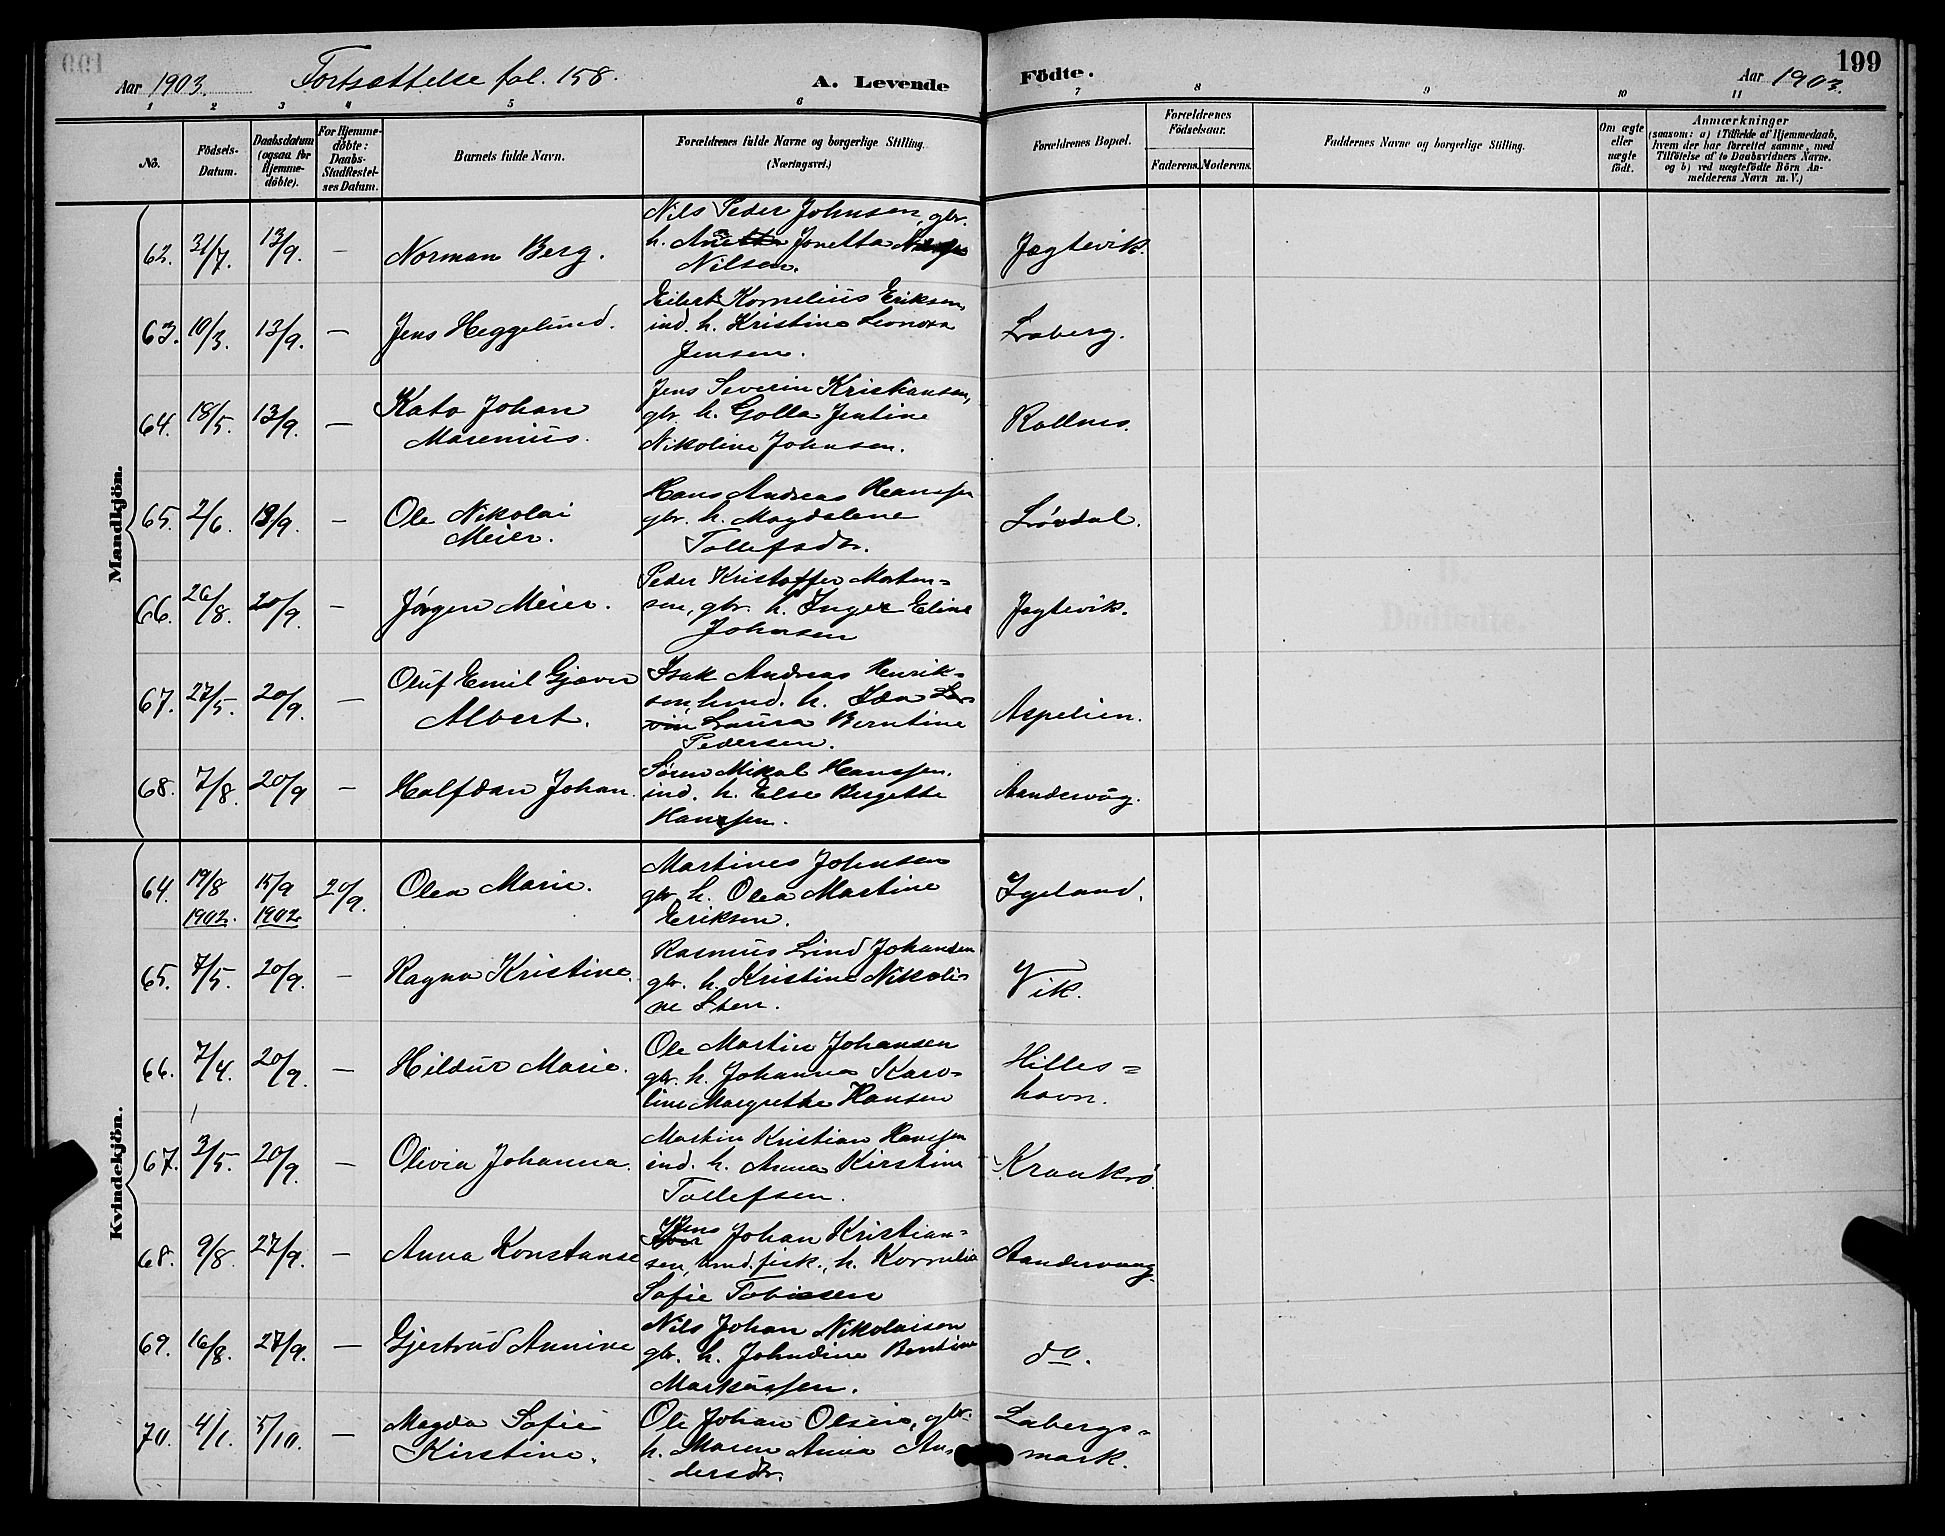 199
Aar 1903. Fortsættelse fol. 158. A. Levende Födte. Aar 1903.
1 2 3 4 5 6 7 8 9 10 11
No.
Födsels-
Datum.
Daabsdatum
(ogsaa for
Hjemme-
döbte).
For Hjemme-
döbte:
Daabs-
Stadfestel-
ses Datum.
Barnets fulde Navn.
Forældrenes fulde Navne og borgerlige Stilling.
(Næringsvei.)
Forældrenes Bopæl.
Forældrenes
Födselsaar.
Faderens. Moderens.
Faddernes Navne og borgerlige Stilling.
Om ægte
eller
uægte
födt.
Anmærkninger
(saasom: a) i Tilfælde af Hjemmedaab,
hvem der har forrettet samme, med
Tilföielse af to Daabsvidners Navne,
og b) ved uægtefödte Börn An-
melderens Navn m. V.)
Mandkjön.
62. 31/7. 13/9. — Norman Berg.
Nils Peder Johnsen, gbr.
h. Jonetta
Nilsen.
Jagtevik.
63. 10/3. 13/9. — Jens Heggelund.
Eilert Kornelius Eriksen,
ind. h. Kristine Leonora
Jensen.
Laberg.
64. 18/5. 13/9. — Kato Johan
Marenius.
Jens Severin Kristiansen,
gbr. h. Golla Jentine
Nikoline Johnsen.
Rollnes.
65. 2/6. 13/9. — Ole Nikolai
Meier.
Hans Andreas Hanssen
gbr. h. Magdalene
Tollefsdr.
Løvdal.
66. 26/8. 20/9. — Jørgen Meier.
Peder Kristoffer Morten-
sen, gbr. h. Inger Eline
Johnsen
Jagtevik.
67. 27/5. 20/9. — Oluf Emil Gjæver
Albert.
Isak Andreas Henrik-
sen, hmd. h. Ida
Laura Berntine
Pedersen.
Aspelien.
68. 7/8. 20/9 — Halfdan Johan.
Søren Mikal Hanssen.
ind. h. Else Bergette
Hanssen.
Aandervåg.
Kvindekjön.
64. 19/8 1902. 15/9 1902. 20/9. Olea Marie.
Martines Johnsen
gbr. h. Olea Martine
Eriksen.
Igeland.
65. 7/5. 20/9. — Ragna Kristine.
Rasmus Lind Johansen
gbr. h. Kristine Nikoli-
ne Sten.
Vik.
66. 7/4. 20/9. — Hildur Marie.
Ole Martin Johansen
gbr. h. Johanna Karo-
line Margrethe Hansen
Hilles-
havn.
67. 3/5. 20/9. — Olivia Johanna.
Martin Kristian Hanssen
ind. h. Anna Kirstine
Tollefsen.
Kraakrö.
68. 9/8. 27/9. — Anna Konstanse
Jens Johan Kristian-
sen, hmd. fisk., h. Kornelia
Sofie Tobiasen
Aandervaag.
69. 16/8. 27/9. — Gjertrud Annine
Nils Johan Nikolaisen
gbr. h. Johndine Bentine
Markussen.
do.
70. 4/1. 5/10. — Magda Sofie
Kirstine.
Ole Johan Olsen, gbr.
h. Maren Anna An-
dersdr.
Labergs-
mark.